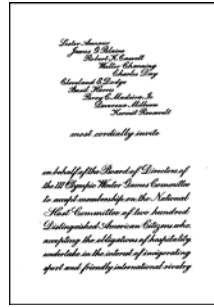 Lester Armour
James G Blaine
Robert K Cassatt
Walter Channing
Charles Day
Cleveland E Dodge
Basil Harris
Percy C Madeira Jr
Lawrence Millown
Kermit Roosevelt
most cordially invite
on behalf of the Board of Directors of
the III Olympic Winter Games Committee
to accept membership on the National
Host Committee of two hundred
Distinguished American Citizens who
accepting the obligations of hospitality
undertake in the interest of invigorating
sport and friendly international rivalry